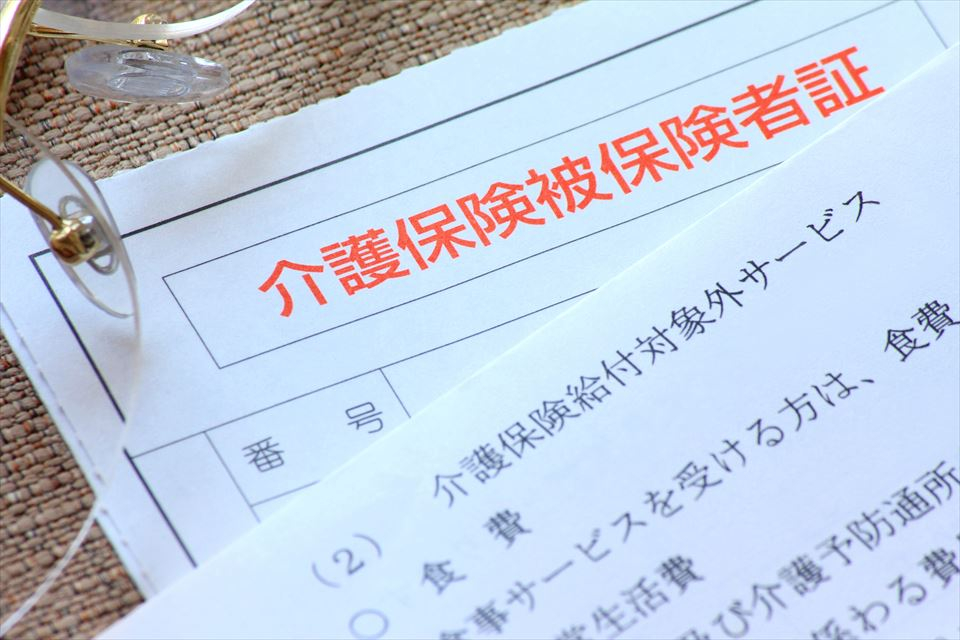 介護保険被保険者証
番号
(2) 介護保険給付対象外サービス
○ 食費
食事サービスを受ける方は、食費
常生活費
及び介護予防通所
係わる費